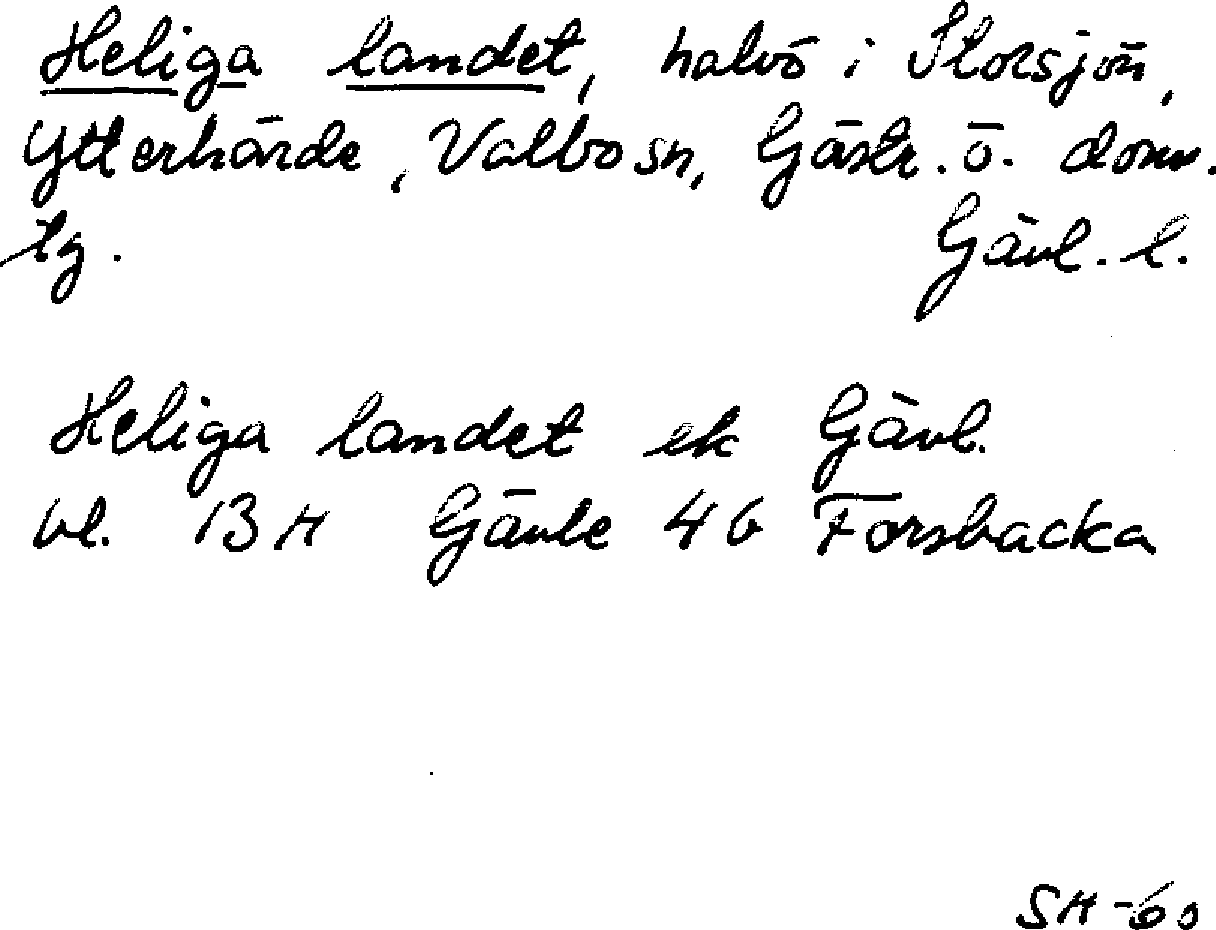 Heliga landet, halvö i Storsjön,
Ytterhärde, Valbo sn, Gästr. ö. doms.
tg. Gävl. l.
Heliga landet ek Gävl.
bl. 13 H Gävle 4 b Forsbacka
SH -60